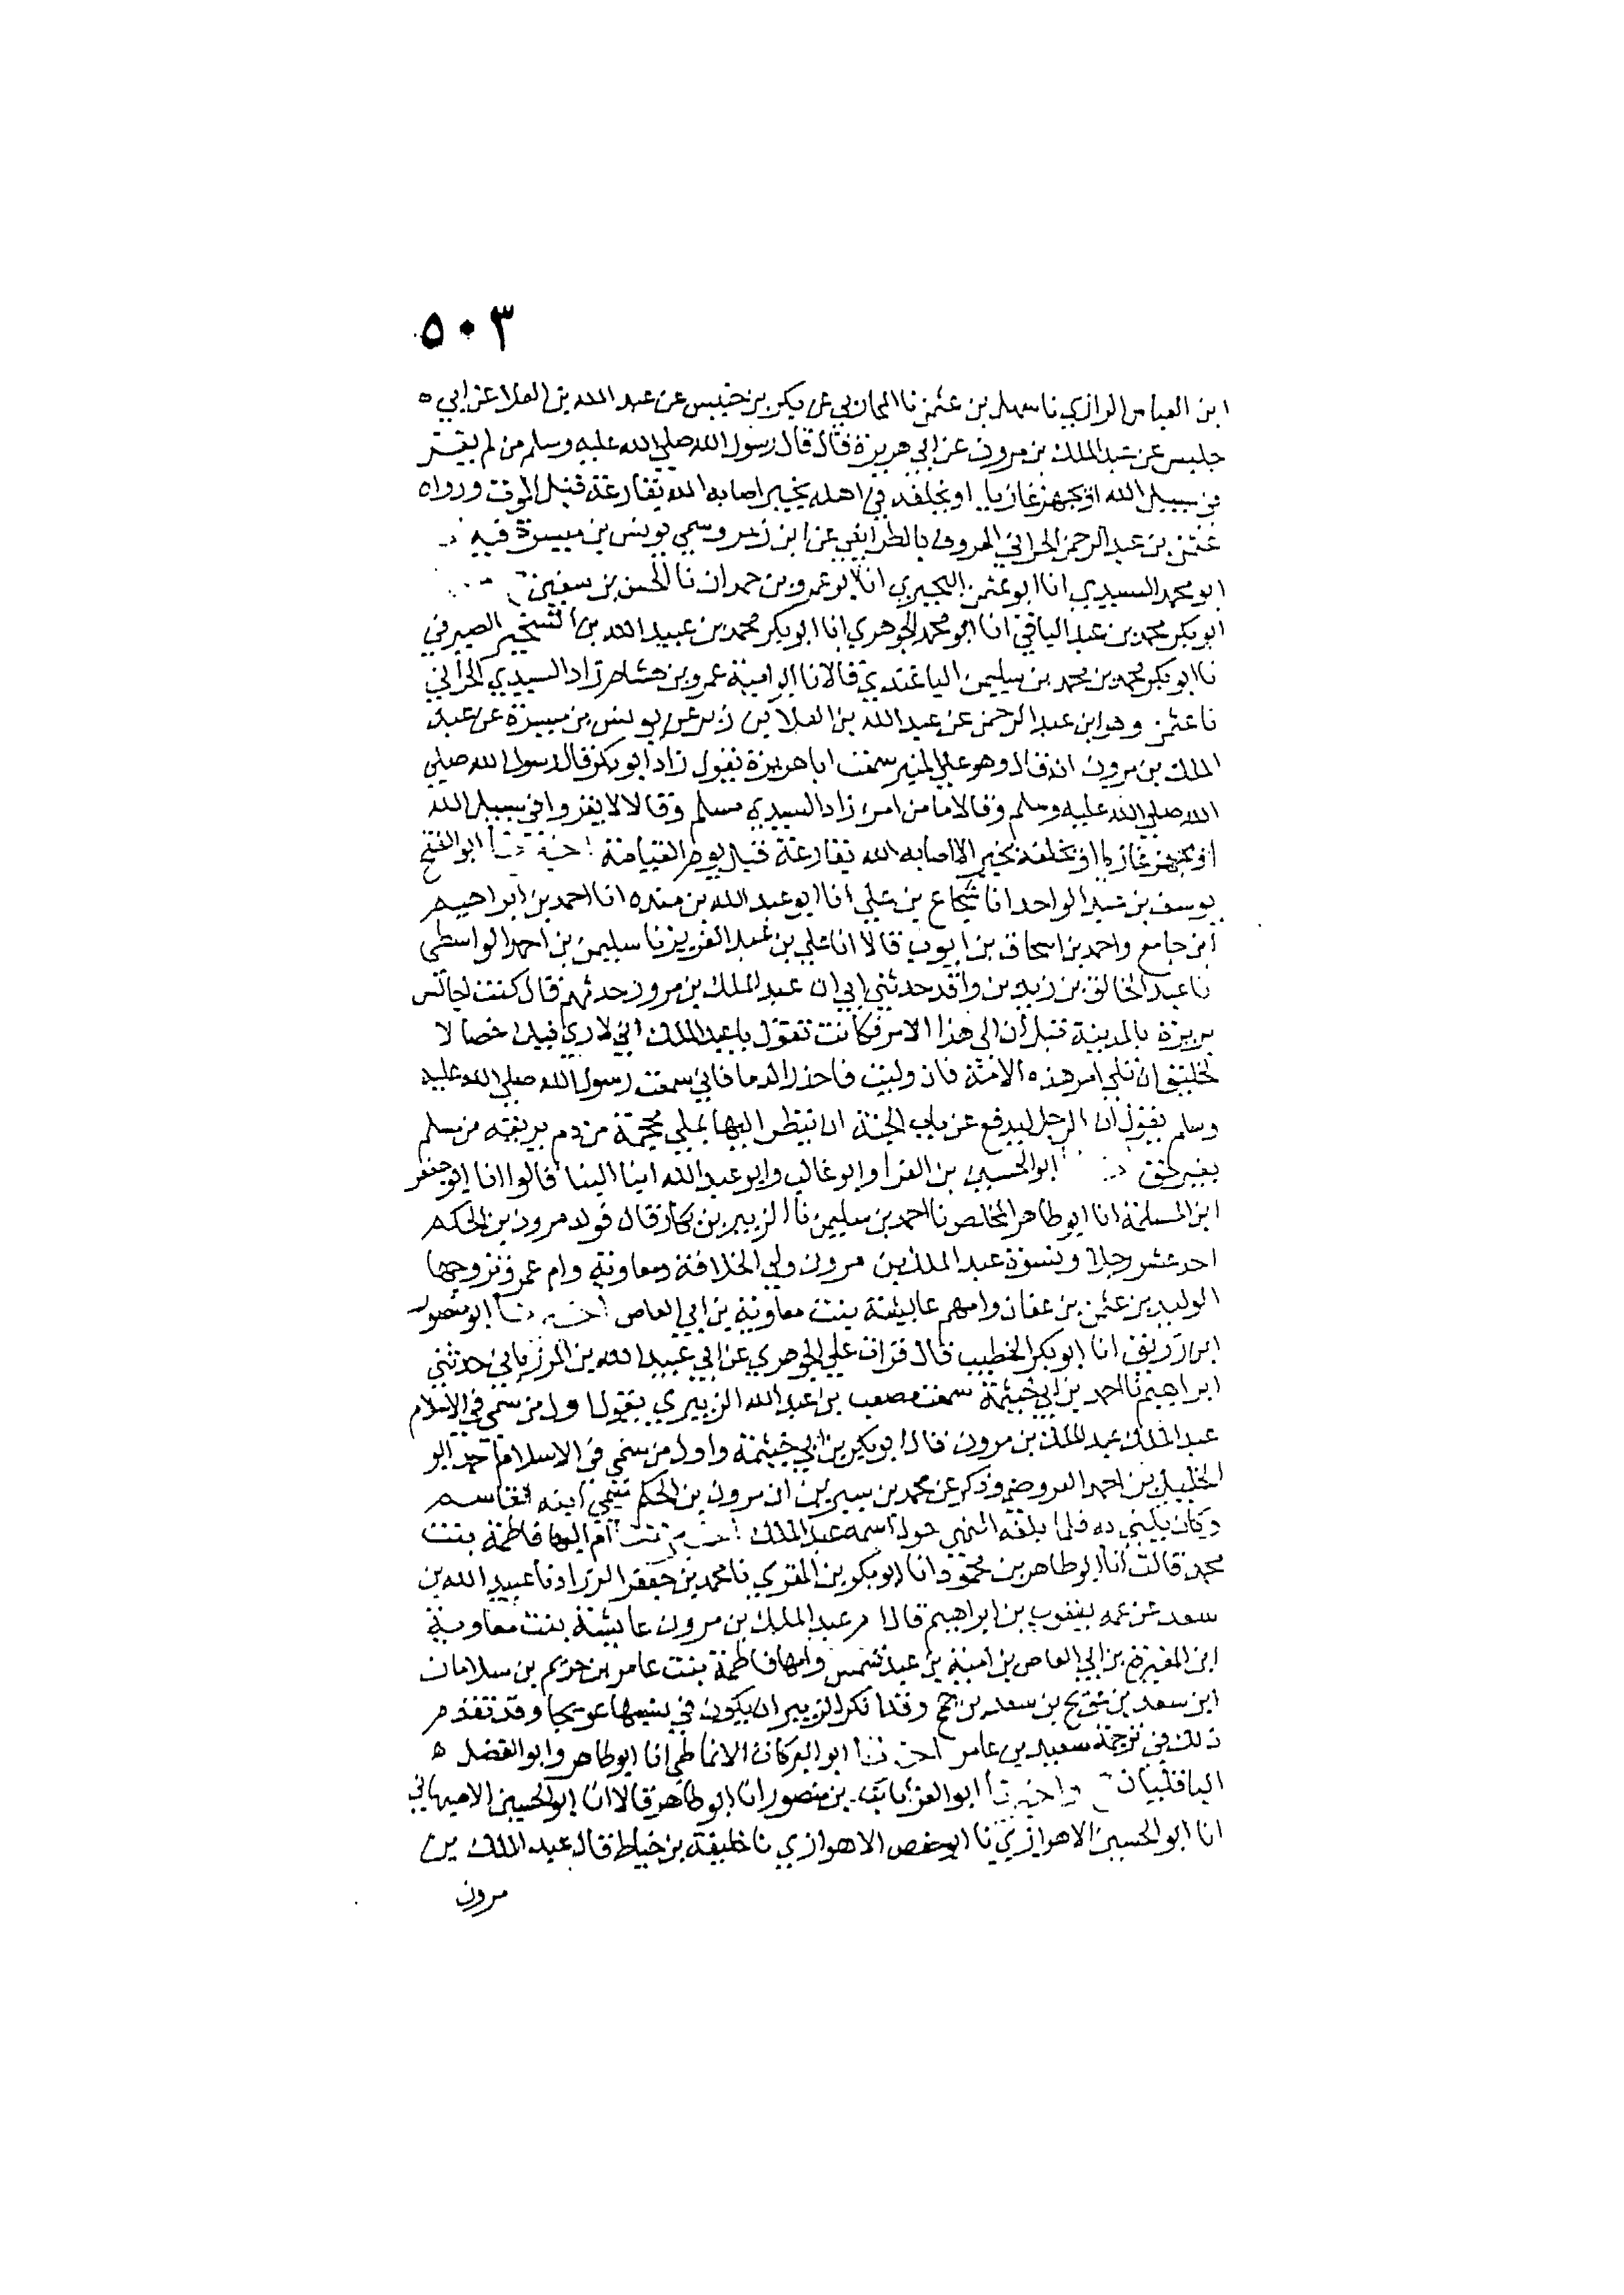 ٥٠٣
ابن العباس الرازي نا سهل بن عثمن نا المحاربي عن بكر بن خنيس عن عبد الله بن العلا عن ابي ه
حليس عن عبد الملك بن مرون عن ابي هريرة قال قال رسول الله صلي الله عليه وسلم من لم يغز
في سبيل الله او يجهز غازيا او يخلفه في اهله بخير اصابه الله بقارعة قبل الموت ورواه
عثمن بن عبد الرحمن الحراني المعروف بالطرايفي عن ابن زبر وسمي يونس بن ميسرة فيه
ابو محمد السيدي انا ابو عثمن البحيري انا ابو عمرو بن حمدان نا الحسن بن سفين
ابو بكر محمد بن عبد الباقي انا ابو محمد الجوهري انا ابو بكر محمد بن عبيد الله بن الشخير الصيرفي
نا ابو بكر محمد بن محمد بن سليمن الباغندي قالا نا ابو امية عمرو بن هشام زاد السيدي الحراني
نا عثمن وهو ابن عبد الرحمن عن عبد الله بن العلا بن زبر عن يونس بن ميسرة عن عبد
الملك بن مرون انه قال وهو علي المنبر سمعت ابا هريرة يقول زاد ابو بكر قال رسول الله صلي
الله صلي الله عليه وسلم وقالا ما من امرئ زاد السيدي مسلم وقالا لا يغزوا في سبيل الله
او يجهز غازيا او يخلفه بخير الا اصابه الله بقارعة قبل يوم القيامة اخبرنا ابو الفتح
يوسف بن عبد الواحد انا شجاع بن علي انا ابو عبد الله بن منده انا احمد بن ابراهيم
ابن جامع واحمد بن اسحاق بن ايوب قالا انا علي بن عبد العزيز نا سليمن بن احمد الواسطي
نا عبد الخالق بن زيد بن واقد حدثني ابي ان عبد الملك بن مرون حدثهم قال كنت اجالس
بريرة بالمدينة قبل ان الي هذا الامر فكانت تقول يا عبد الملك اني لاري فيك خصالا
لخليق ان تلي امر هذه الامة فان وليت فاحذر الدما فاني سمعت رسول الله صلي الله عليه
وسلم يقول ان الرجل ليدفع عن باب الجنة ان ينظر اليها بملي محجمة من دم يريقه من مسلم
بغير حق ابو الحسين بن الفرا وابو غالب وابو عبد الله ابنا البنا قالوا انا ابو جعفر
ابن المسلمة انا ابو طاهر المخلص نا احمد بن سليمن نا الزبير بن بكار قال فولد مرون بن الحكم
احد عشر رجلا ونسوة عبد الملك بن مرون ولي الخلافة ومعاوية وام عمرو تزوجها
الوليد بن عثمن بن عفان وامهم عايشة بنت معاوية بن ابي العاص اخبرنا ابو منصور
ابن زريق انا ابو بكر الخطيب قال قرات علي الجوهري عن ابي عبيد الله بن المرزباني حدثني
ابراهيم نا احمد بن ابي خيثمة سمعت مصعب بن عبد الله الزبيري يقول اول من سمي في الاسلام
عبد الملك عبد الملك بن مرون قال ابو بكر بن ابي خيثمة واول من سمي في الاسلام احمد ابو
الخليل بن احمد العروضي وذكر عن محمد بن سيرين ان مرون بن الحكم سمي ابنه القاسم
وكان يكني به فلما بلغه النهي حول اسمه عبد الملك اخبرتنا ام البها فاطمة بنت
محمد قالت انا ابو طاهر بن محمود انا ابو بكر بن المقري نا محمد بن جعفر الزراد نا عبيد الله بن
سعد عن عمه يعقوب بن ابراهيم قال ام عبد الملك بن مرون عايشة بنت معاوية
ابن المغيرة بن ابي العاص بن امية بن عبد شمس وامها فاطمة بنت عامر بن حريم بن سلامان
ابن سعد بن عويج بن سعد بن جمح وقد انكر الزبير ان يكون في نسبها عويجا وقد تقدم
ذلك في ترجمة سعيد بن عامر اخبرنا ابو البركات الانماطي انا ابو طاهر وابو الفضل ه
الباقلانيان واخبرنا ابو العز ثابت بن منصور انا ابو طاهر قالا انا ابو الحسين الاصبهاني
انا ابو الحسين الاهوازي نا ابو حفص الاهوازي نا خليفة بن خياط قال عبد الملك بن
مرون